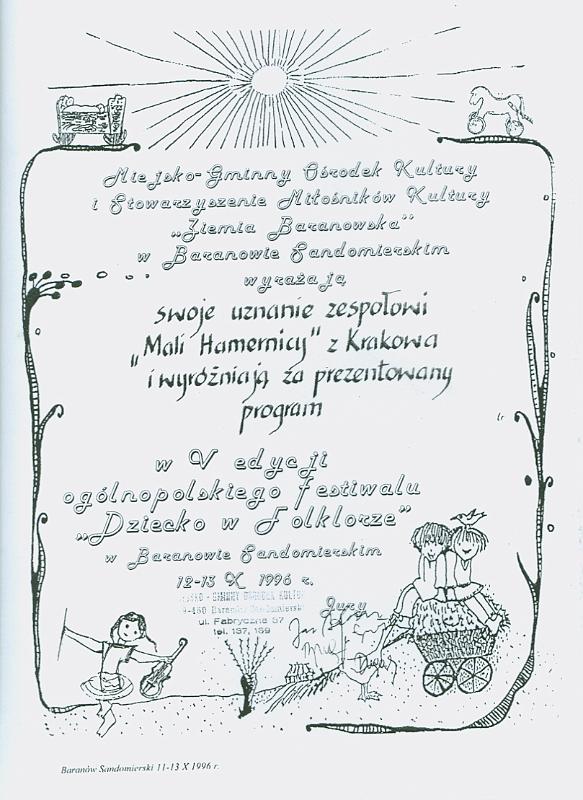 Miejsko-Gminny Ośrodek Kultury
i Stowarzyszenie Miłośników Kultury
„Ziemia Baranowska”
w Baranowie Sandomierskim
wyrażają
swoje uznanie zespołowi
„Mali Hamernicy" z Krakowa
i wyróżniają za prezentowany
program
w V edycji
ogólnopolskiego festiwalu
„Dziecko w Folklorze”
w Baranowie Sandomierskim
12-13 X 1996 r.
GMINNY OŚRODEK KULTU
-450 Baranów Sandomierski
ul. Fabryczna 57
tel. 137, 169
Jury
Baranów Sandomierski 11-13 X 1996 r.